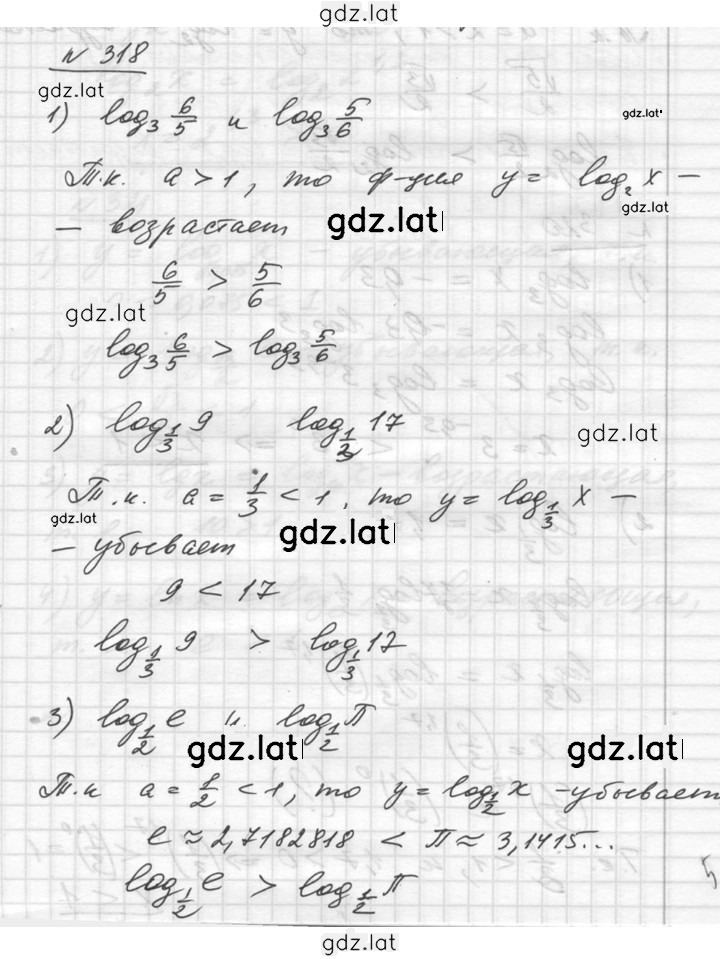 gdz.lat
N 318
gdz.lat
1) log₃ 6/5 и log₃ 5/6
gdz.lat
Т.к. a > 1, то ф-ция y = log₂ x –
gdz.lat
– возрастает
gdz.lat
6/5 > 5/6
gdz.lat
log₃ 6/5 > log₃ 5/6
2) log_{1/3} 9 log_{1/3} 17
gdz.lat
Т.к. a = 1/3 < 1, то y = log_{1/3} x –
gdz.lat
– убывает
gdz.lat
9 < 17
log_{1/3} 9 > log_{1/3} 17
3) log_{1/2} e и log_{1/2} π
gdz.lat gdz.lat
Т.к a = 1/2 < 1, то y = log_{1/2} x – убывает
e ≈ 2,7182818 < π ≈ 3,1415...
log_{1/2} e > log_{1/2} π
gdz.lat